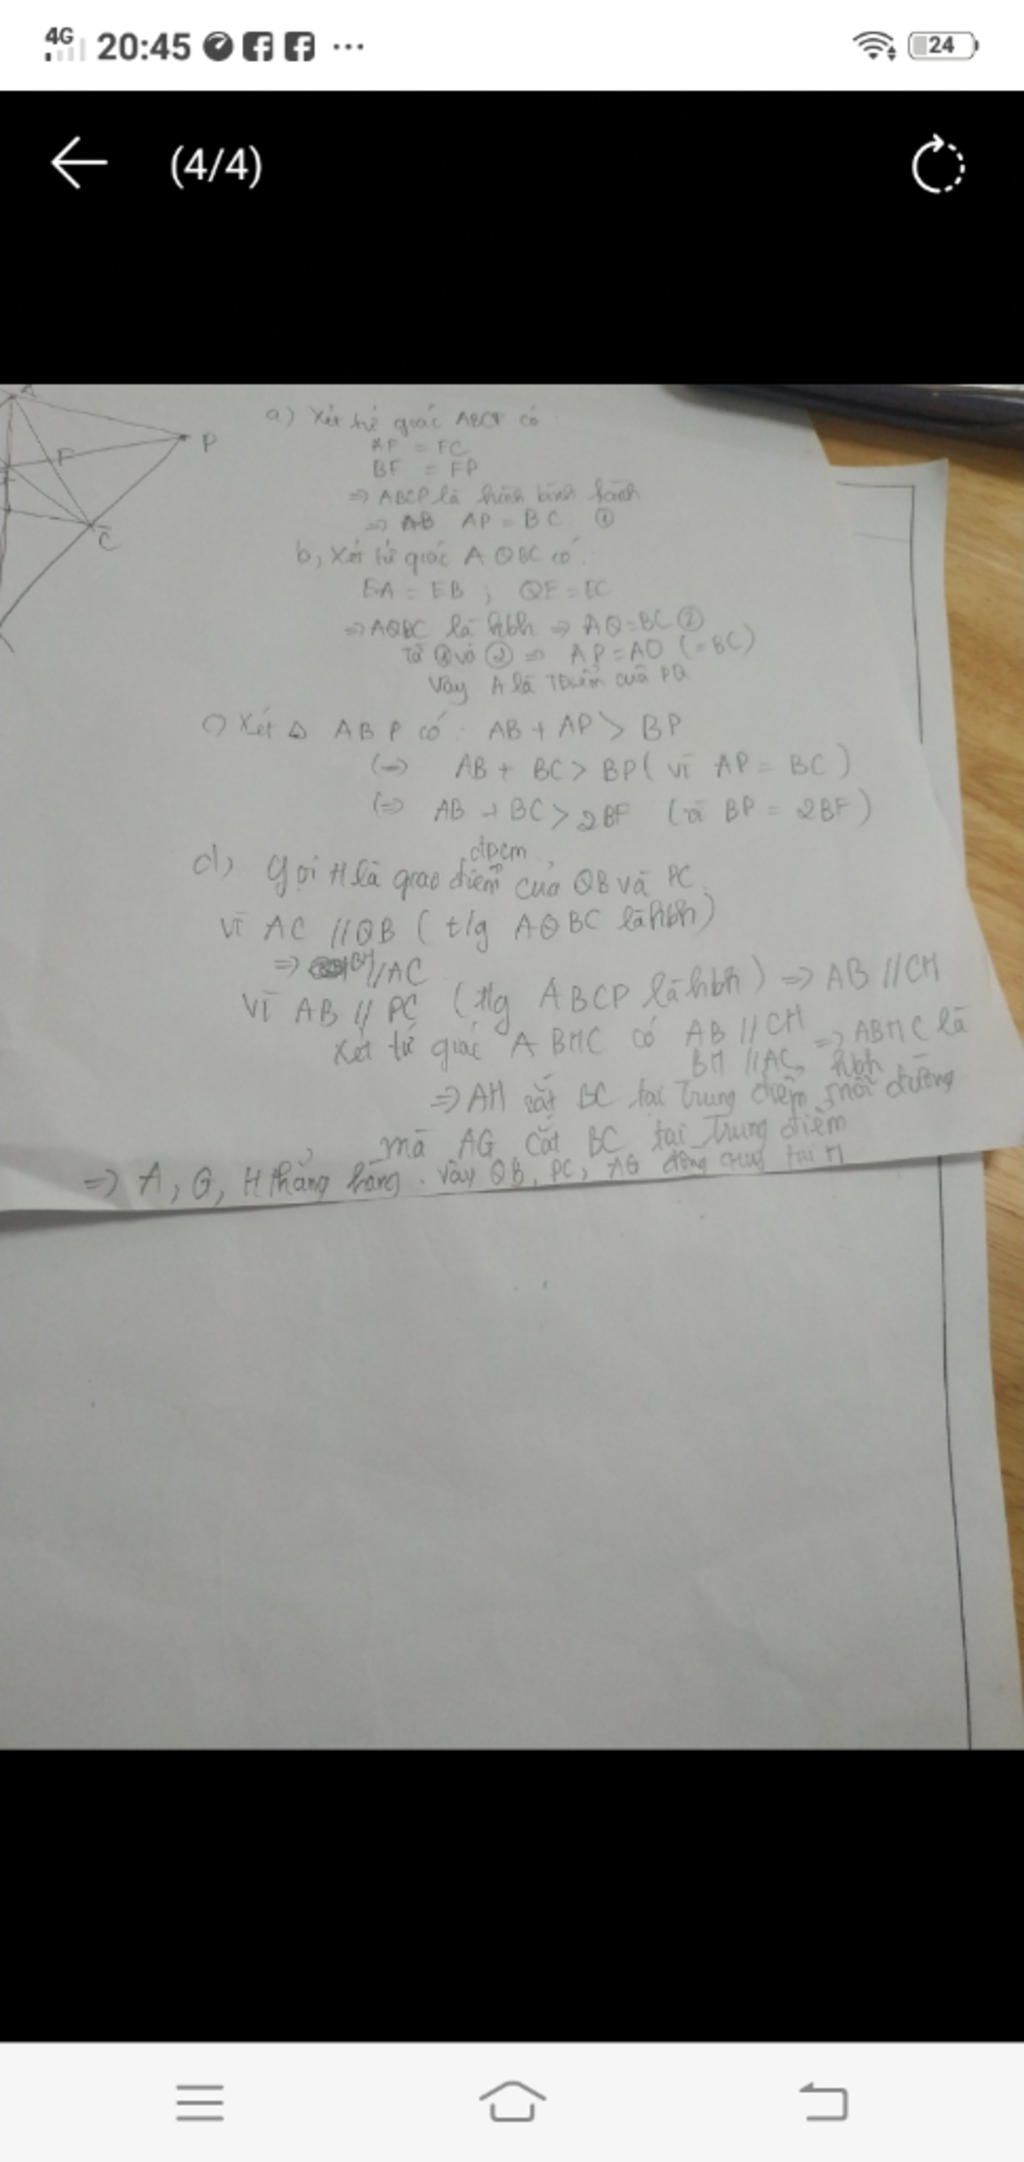 4G 20:45 ... 24
(4/4)
A
P
F
C
a) Xét tứ giác ABCP có
AF = FC
BF = FP
=> ABCP là hình bình hành
=> AB AP = BC ①
b, Xét tứ giác AQBC có:
EA = EB ; QE = EC
=> AQBC là hbh => AQ=BC ②
Từ ① và ② => AP=AQ (=BC)
Vậy A là Tđiểm của PQ
c) Xét Δ ABP có : AB + AP > BP
(=> AB + BC > BP ( vì AP = BC )
(=> AB + BC > 2BF (vì BP = 2BF )
đpcm
d, gọi H là giao điểm của QB và PC.
Vì AC // QB ( t/g AQBC là hbh)
=> BH // AC
Vì AB // PC (t/g ABCP là hbh ) => AB // CH
Xét tứ giác ABHC có AB // CH => ABHC là
BH // AC hbh
=> AH cắt BC tại Trung điểm mỗi đường
mà AG cắt BC tại Trung điểm
=> A, G, H thẳng hàng . Vậy QB, PC, AG đồng quy tại H